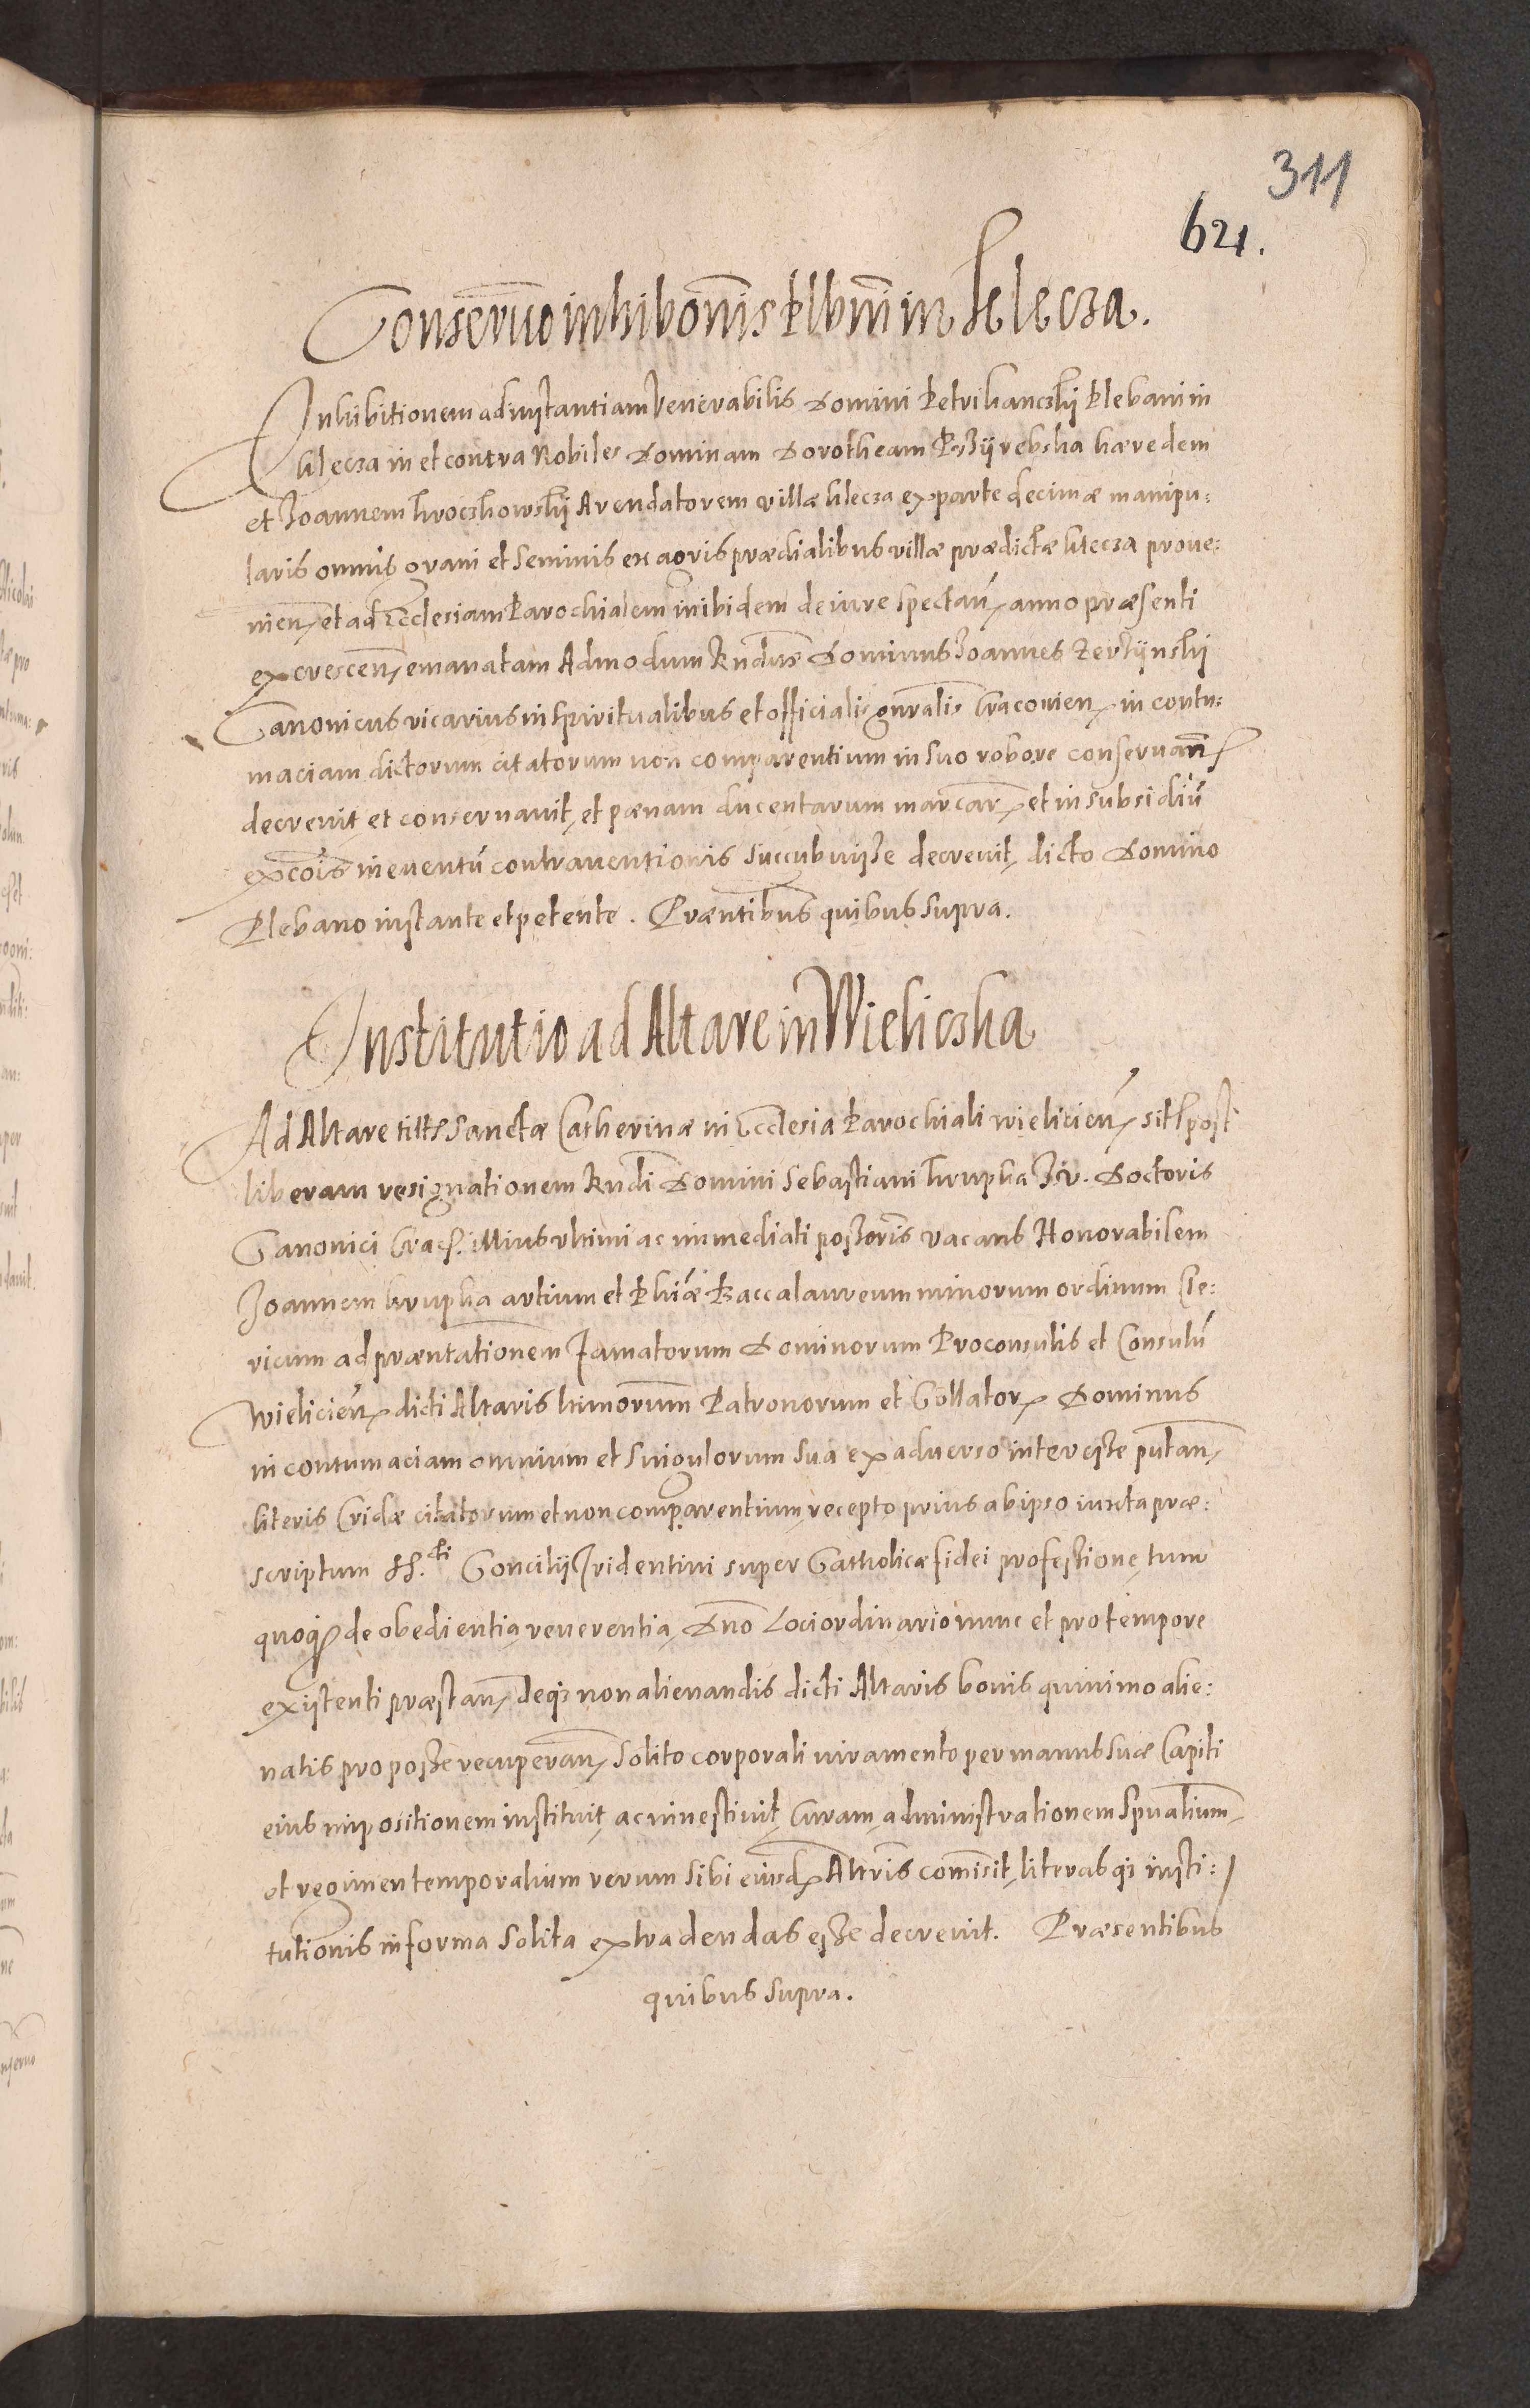 311
621.
Conseruo inhibonis Plbni in Klecza.
Inhibitionem ad instantiam Venerabilis Domini Petri Kanczkij Plebani in
Klecza in et contra Nobiles Dominam Dorotheam Przijrebska hæredem
et Joannem Kroczkowskij Arendatorem villæ Klecza ex parte decimæ manipu:
laris omnis grani et seminis ex agris prædialibus villæ prædictæ Klecza proue:
nien. et ad Ecclesiam Parochialem inibidem de iure spectan. anno præsenti
excrescen. emanatam Admodum Rndus Dominus Joannes
Canonicus vicarius in Spiritualibus et officialis gnralis Cracouien. in contu:
maciam dictorum citatorum non comparentium in suo robore conseruan.
decreuit et conseruauit, et pænam ducentarum marcar. et in subsidiu
excois in euentu contrauentionis succubuisse decreuit, dicto Domino
Plebano instante et petente. Præntibus quibus supra.
Institutio ad Altare in Wieliczka
Ad Altare titt. Sanctæ Catherinæ in Ecclesia Parochiali wielicien. sit. post
liberam resignationem Rndi Domini Sebastiani Krupka J.v. Doctoris
Canonici Crac. illius vltimi ac immediati possoris vacans Honorabilem
Joannem Krupka artium et Phiæ Baccalaureum minorum ordinum Cle:
ricum ad præntationem famatorum Dominorum Proconsulis et Consulu
wielicien. dicti Altaris ltimorum Patronorum et Collator. Dominus
in contumaciam omnium et singulorum sua ex aduerso interesse putan.
literis Cridæ citatorum et non comparentium, recepto prius ab ipso iuxta præ:
scriptum SS.cti Concilij Tridentini super Catholicæ fidei professione, tum
quoq. de obedientia, reuerentia, Dno Loci ordinario nunc et pro tempore
existenti præstan. deq. non alienandis dicti Altaris bonis quinimo alie:
natis pro posse recuperan. solito corporali iuramento per manus suæ Capiti
eius impositionem instituit, ac inuestiuit, Curam, administrationem spualium,
et regimen temporalium rerum sibi eiusd. Altris comisit, literasq. insti:
tutionis in forma solita extradendas esse decreuit. Præsentibus
quibus supra.